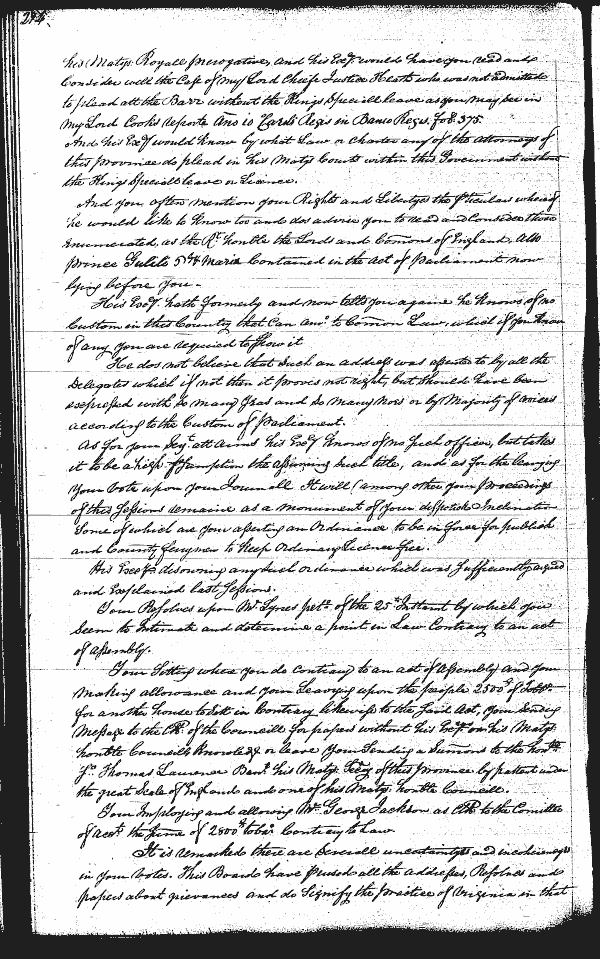 294.
his Matys Royall prerogative, and his Exy would have you read and
Consider well the Case of my Lord Cheife Justice Heath who was not admitted
to plead att the Barr without the Kings Speciall leave as you may see in
my Lord Cooks reports Ano 10 Caroli Regis in Banco Regis. fol. 375.
And his Exy would know by what Law or Charter any of the attorneys of
this province do plead in his Matys Courts within this Government without
the Kings Speciall leave or Licence.
And you often mention your Rights and Libertys the pticulars whereof
he would like to know too and dos advise you to read and Consider those
Enumerated, as the Rt honble the Lords and Comons of England, Also
prince and Maria Contained in the Act of Parliament now
lying before you.
His Exy hath formerly and now tells you againe he knows of no
Custom in this Country that Can to Comon Law, which if you know
of any you are required to show it
He does not beleive that such an address was assented to by all the
Delegates which if not then it proves not right, but should have been
expressed with so many Yeas and so many Nois or by Majority of voices
according to the Custom of Parliament.
As for your Serjt att Arms his Exy knows of no such officer, but takes
it to be a high the assuming such title, and as for the leaving
your Vote upon your Journall It will (among other your proceedings
of this Sessions remaine as a monument of your Inclination
Some of which are your asserting an Ordinance to be in force for publick
and County ferrymen to keep Ordinary Licence free.
His Excy disowning any such ordinance which was sufficiently argued
and Explained last Sessions.
Your Resolves upon Mr petn of the 25th Instant by which you
seem to Intimate and determine a point in Law Contrary to an act
of assembly.
Your Sitting where you do contrary to an act of Assembly and your
making allowance and your Leavying upon the people 2500 of Tobb.
for another house to sit in Contrary likewise to the said Act, your sending
Message to the Clk of the Councill for papers without his Exys or his Matys
honble Councills knowledge or leave your Sending a Sumons to the honble
Sr Thomas Laurence Bart his Matys Secry of this Province by patent under
the great Seale of England and one of his Matys honble Councill.
Your Imploying and allowing Mr George Jackson as Clk to the Comittee
of accts the sume of 2800 tob Contrary to Law.
It is remarked there are severall uncertaintys and
in your votes. This Board have perused all the addresses, Resolves and
papers about grievances and do signify the practice of Virginia in that